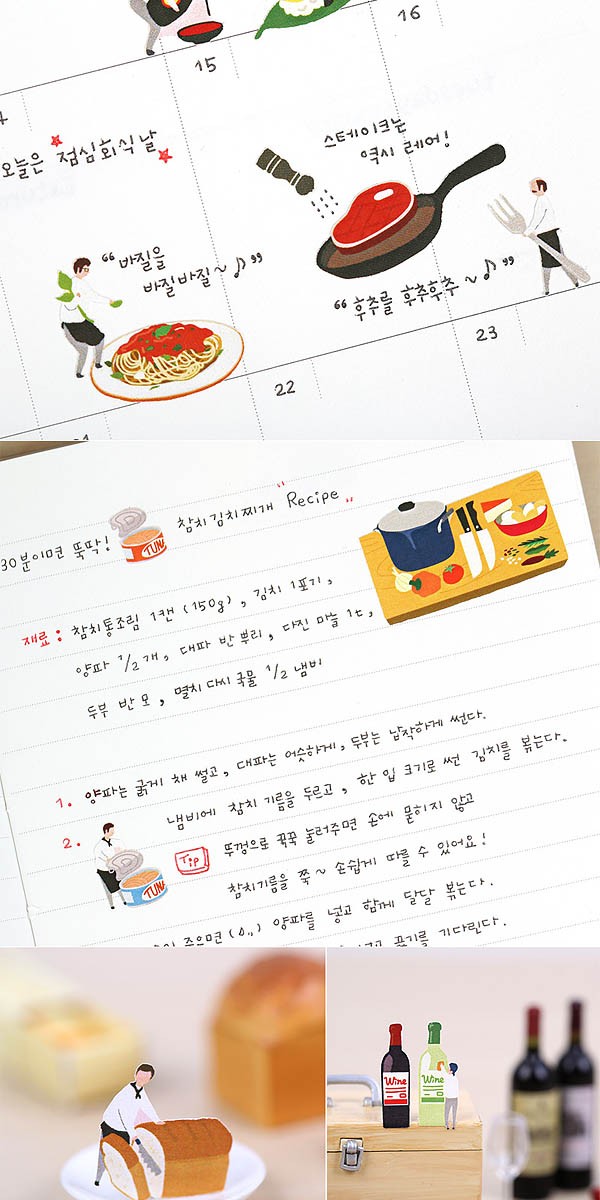 16
15
오늘은 점심회식날
스테이크는
역시 레어!
“ 바질을
바질바질~♪ ”
“ 후추를 후추후추~♪ ”
23
22
30분이면 뚝딱!
TUNA
참치김치찌개 "Recipe"
재료 : 참치통조림 1캔 (150g), 김치 1포기,
양파 1/2개, 대파 반 뿌리, 다진 마늘 1t,
두부 반 모, 멸치 다시 국물 1/2 냄비
1. 양파는 굵게 채 썰고, 대파는 어슷하게, 두부는 납작하게 썬다.
2. 냄비에 참치 기름을 두르고, 한 입 크기로 썬 김치를 볶는다.
Tip 뚜껑으로 꾹꾹 눌러주면 손에 묻히지 않고
TUNA
참치기름을 쭉~ 손쉽게 따를 수 있어요!
죽으면 양파를 넣고 함께 달달 볶는다.
끓기를 기다린다.
Wine
Wine